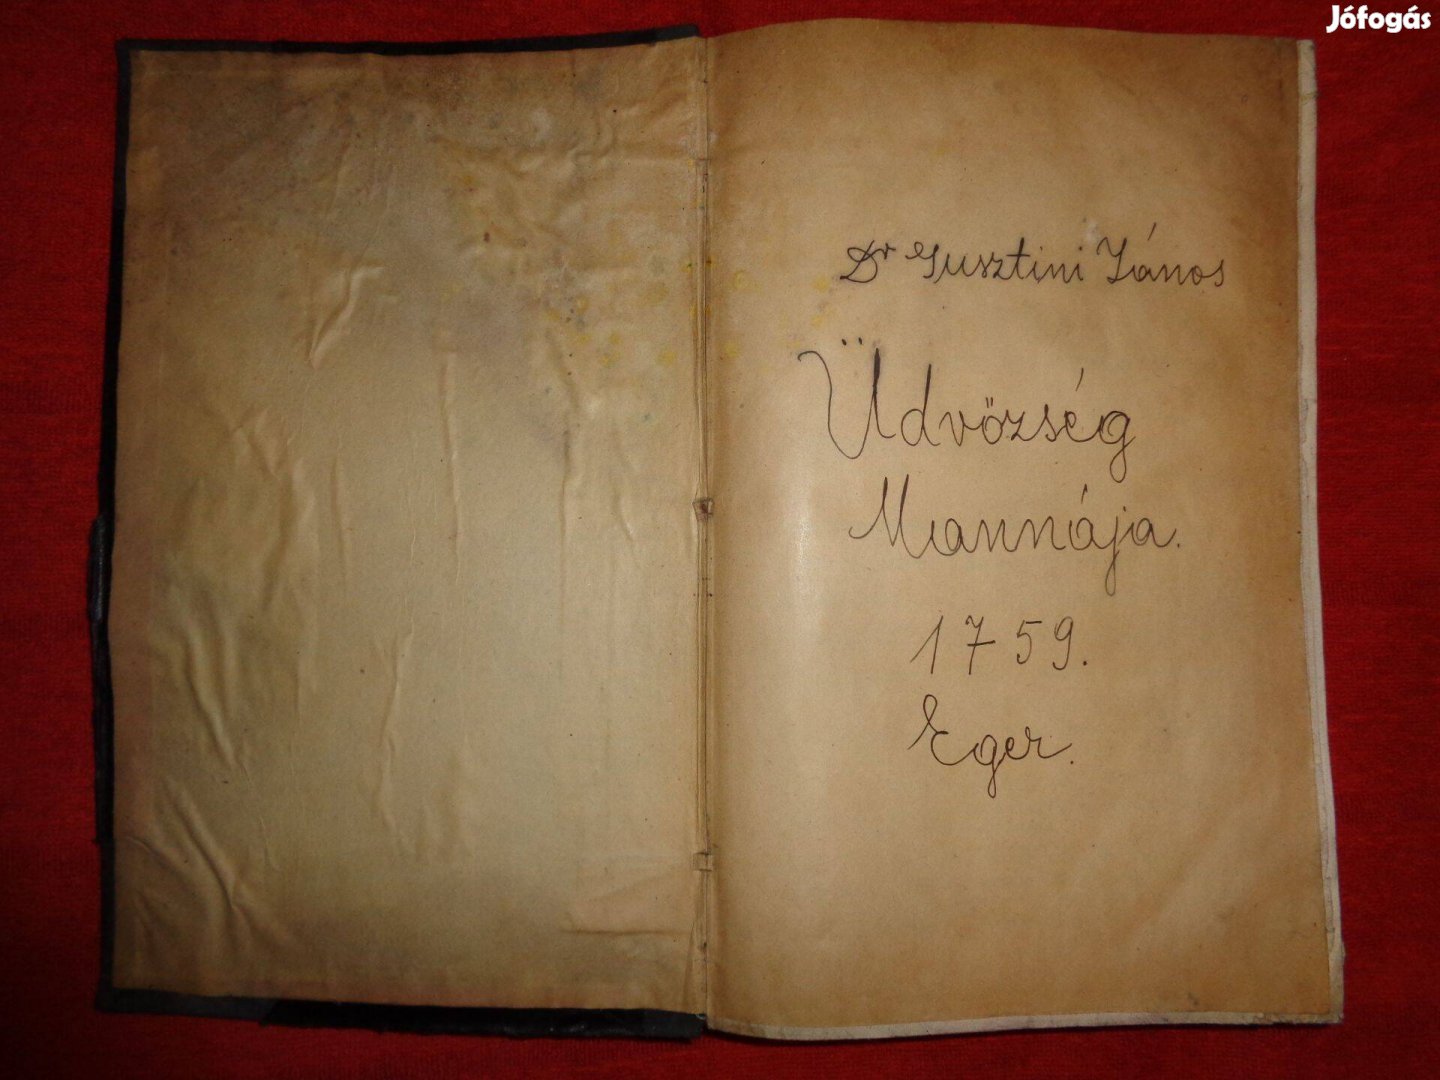 Jófogás
Dr Gusztini János
Üdvözség
Mannája.
1759.
Eger.